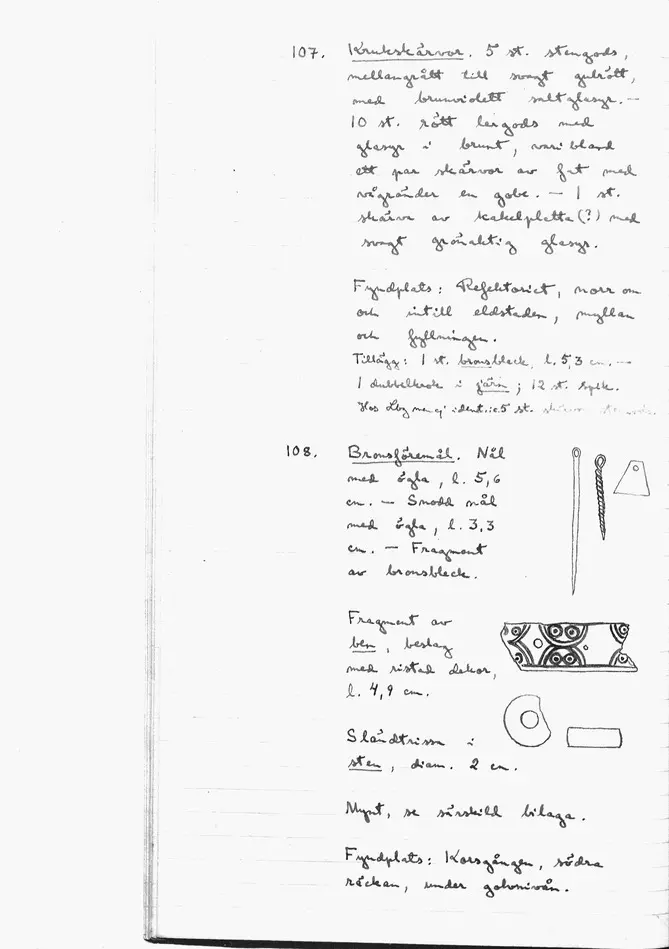 107. Krukskärvor. 5 st. stengods,
mellangrått till svagt gulrött,
med brunviolett saltglasyr. —
10 st. rött lergods med
glasyr i brunt, varibland
ett par skärvor av fat med
vågränder en gobe. — 1 st.
skärva av kakelplatta (?) med
svagt grönaktig glasyr.
Fyndplats: Refektoriet, norr om
och intill eldstaden, myllan
och fyllningen.
Tillägg: 1 st. bronsbleck, l. 5,3 cm. —
1 dubbelkrok i järn; 12 st. spik.
Hos Lbg men ej ident. 5 st.
108. Bronsföremål. Nål
med ögla, l. 5,6
cm. — Snodd nål
med ögla, l. 3,3
cm. — Fragment
av bronsbleck.
Fragment av
ben, beslag
med ristad dekor,
l. 4,9 cm.
Sländtrissa i
sten, diam. 2 cm.
Mynt, se särskild bilaga.
Fyndplats: Korsgången, södra
räckan, under golvnivån.